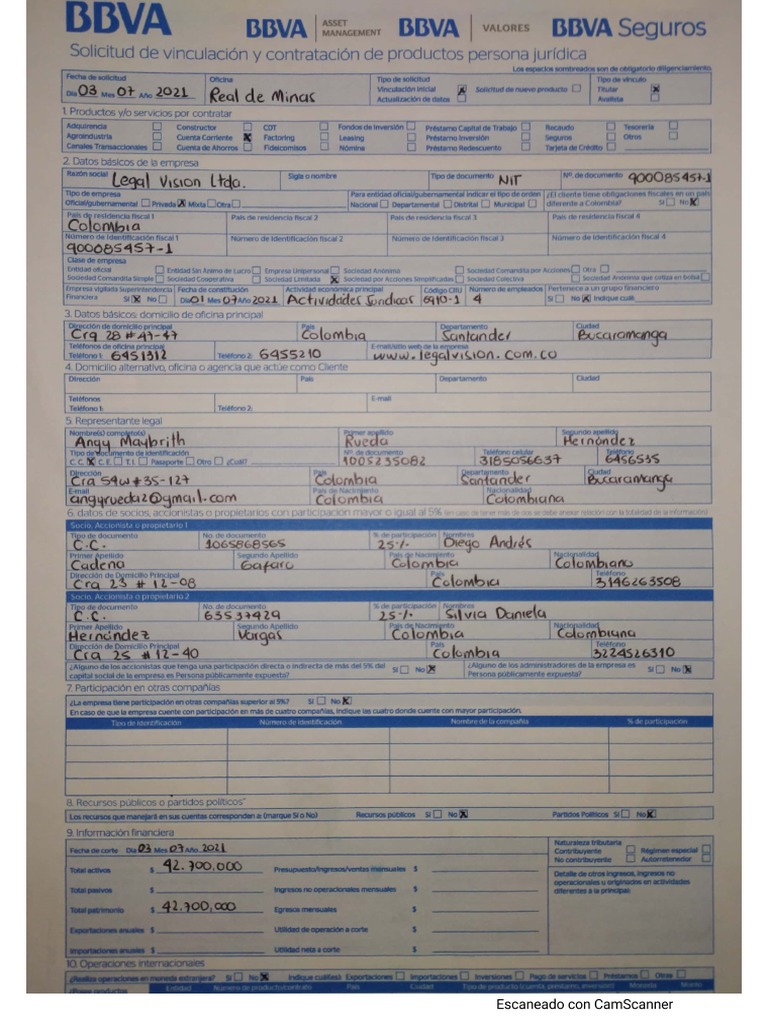 BBVA BBVA ASSET MANAGEMENT BBVA VALORES BBVA Seguros
Solicitud de vinculación y contratación de productos persona jurídica
Los espacios sombreados son de obligatorio diligenciamiento.
Fecha de solicitud Oficina Tipo de solicitud Tipo de vínculo
Día 03 Mes 07 Año 2021 Real de Minas Vinculación inicial X Solicitud de nuevo producto Titular X
Actualización de datos Avalista
1. Productos y/o servicios por contratar
Adquirencia Constructor CDT Fondos de Inversión Préstamo Capital de Trabajo Recaudo Tesorería
Agroindustria Cuenta Corriente X Factoring Leasing Préstamo Inversión Seguros Otros
Canales Transaccionales Cuenta de Ahorros Fideicomisos Nómina Préstamo Redescuento Tarjeta de Crédito
2. Datos básicos de la empresa
Razón social Legal Vision Ltda. Sigla o nombre Tipo de documento NIT Nº. de documento 900085457-1
Tipo de empresa Para entidad oficial/gubernamental indicar el tipo de orden ¿El cliente tiene obligaciones fiscales en un país
Oficial/gubernamental Privada X Mixta Otra Nacional Departamental Distrital Municipal diferente a Colombia? Sí No X
País de residencia fiscal 1 País de residencia fiscal 2 País de residencia fiscal 3 País de residencia fiscal 4
Colombia
Número de Identificación fiscal 1 Número de Identificación fiscal 2 Número de Identificación fiscal 3 Número de Identificación fiscal 4
900085457-1
Clase de empresa
Entidad oficial Entidad Sin Ánimo de Lucro Empresa Unipersonal Sociedad Anónima Sociedad Comandita por Acciones Otra
Sociedad Comandita Simple Sociedad Cooperativa Sociedad Limitada X Sociedad por Acciones Simplificadas Sociedad Colectiva Sociedad Anónima que cotiza en Bolsa
Empresa vigilada Superintendencia Fecha de constitución Actividad económica principal Código CIIU Número de empleados Pertenece a un grupo financiero
Financiera Sí X No Día 01 Mes 07 Año 2021 Actividades Juridicas 6910-1 4 Sí No X Indique cuál:
3. Datos básicos: domicilio de oficina principal
Dirección de domicilio principal País Departamento Ciudad
Cra 28 #47-47 Colombia Santander Bucaramanga
Teléfonos de oficina principal E-mail/sitio web de la empresa
Teléfono 1: 6451312 Teléfono 2: 6455210 www.legalvision.com.co
4. Domicilio alternativo, oficina o agencia que actúe como Cliente
Dirección País Departamento Ciudad
Teléfonos E-mail
Teléfono 1: Teléfono 2:
5. Representante legal
Nombre(s) completo(s) Primer apellido Segundo apellido
Angy Maybrith Rueda Hernández
Tipo de documento de identificación Nº. de documento Teléfono celular Teléfono
C.C. X C.E. T.I. Pasaporte Otro ¿Cuál? 1005235082 3185056637 6456535
Dirección País Departamento Ciudad
Cra 54w #35-127 Colombia Santander Bucaramanga
E-mail País de Nacimiento Nacionalidad
angyrueda2@gmail.com Colombia Colombiana
6. datos de socios, accionistas o propietarios con participación mayor o igual al 5%
Socio, Accionista o propietario 1
Tipo de documento No. de documento % de participación Nombres
C.C. 1065868565 25% Diego Andrés
Primer Apellido Segundo Apellido País de Nacimiento Nacionalidad
Cadena Gafaro Colombia Colombiano
Dirección de Domicilio Principal País Teléfono
Cra 23 # 12-08 Colombia 3146263508
Socio, Accionista o propietario 2
Tipo de documento No. de documento % de participación Nombres
C.C. 63537429 25% Silvia Daniela
Primer Apellido Segundo Apellido País de Nacimiento Nacionalidad
Hernández Vargas Colombia Colombiana
Dirección de Domicilio Principal País Teléfono
Cra 25 #12-40 Colombia 3224526310
¿Alguno de los accionistas que tenga una participación directa o indirecta de más del 5% del ¿Alguno de los administradores de la empresa es
capital social de la empresa es Persona públicamente expuesta? Sí No X Persona públicamente expuesta? Sí No X
7. Participación en otras compañías
¿La empresa tiene participación en otras compañías superior al 5%? Sí No X
En caso de que la empresa cuente con participación en más de cuatro compañías, indique las cuatro donde cuente con mayor participación.
Tipo de identificación Número de identificación Nombre de la compañía % de participación
8. Recursos públicos o partidos políticos*
Los recursos que manejará en sus cuentas corresponden a: (marque Sí o No) Recursos públicos Sí No X Partidos Políticos Sí No X
9. Información financiera
Fecha de corte Día 03 Mes 07 Año 2021 Naturaleza tributaria
Contribuyente Régimen especial
No contribuyente Autorretenedor
Total activos $ 42.700.000 Presupuesto/ingresos/ventas mensuales $
Detalle de otros ingresos, ingresos no
operacionales u originados en actividades
diferentes a la principal
Total pasivos $ Ingresos no operacionales mensuales $
Total patrimonio $ 42.700,000 Egresos mensuales $
Exportaciones anuales $ Utilidad de operación a corte $
Importaciones anuales $ Utilidad neta a corte $
10. Operaciones internacionales
¿Realiza operaciones en moneda extranjera? Sí No X Indique cuál(es): Exportaciones Importaciones Inversiones Pago de servicios Préstamos Otras
Entidad Número de producto/contrato País Ciudad Tipo de producto Moneda Monto
Escaneado con CamScanner